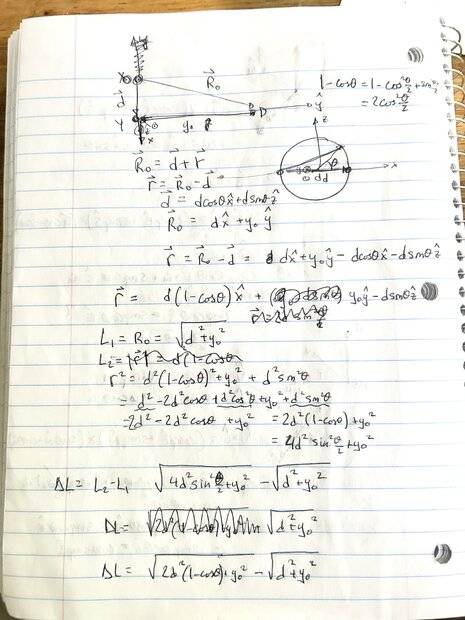 X
R⃗₀
1-cosθ = 1-cos²θ/2 + sin²θ/2
= 2cos²θ/2
d⃗
Y
y₀
D
ŷ
x
z
x
θ
d
R⃗₀ = d⃗ + r⃗
r⃗ = R⃗₀ - d⃗
d⃗ = dcosθx̂ + dsinθẑ
R⃗₀ = dx̂ + y₀ŷ
r⃗ = R⃗₀ - d⃗ = dx̂ + y₀ŷ - dcosθx̂ - dsinθẑ
r⃗ = d(1-cosθ)x̂ + y₀ŷ - dsinθẑ
L₁ = R₀ = √(d²+y₀²)
L₂ = |r⃗| = d(1-cosθ
r² = d²(1-cosθ)² + y₀² + d²sin²θ
= d² - 2d²cosθ + d²cos²θ + y₀² + d²sin²θ
= 2d² - 2d²cosθ + y₀² = 2d²(1-cosθ) + y₀²
= 4d²sin²θ/2 + y₀²
ΔL = L₂-L₁ √(4d²sin²θ/2 + y₀²) - √(d²+y₀²)
ΔL = √(d²+y₀²)
ΔL = √(2d²(1-cosθ)+y₀²) - √(d²+y₀²)